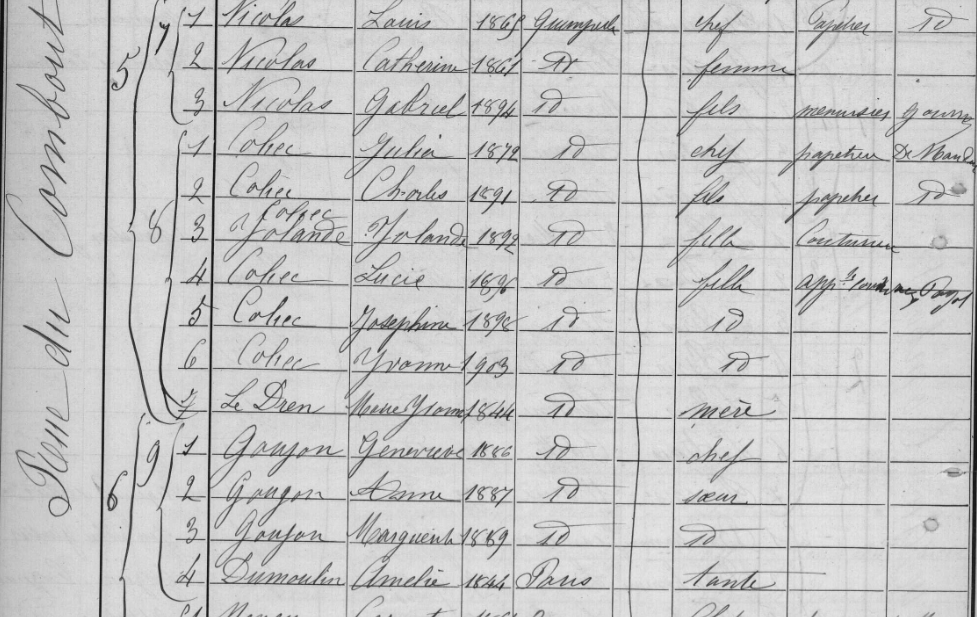 Rue du Combout
5 7 1 Nicolas Louis 1865 Quimperlé chef Papetier id
2 Nicolas Catherine 1861 id femme
3 Nicolas Gabriel 1894 id fils menuisier
8 1 Cohec Julia 1872 id chef papetier De Mauduit
2 Cohec Charles 1891 id fils papetier id
Cohec
3 Yolande Yolande 1892 id fille Couturière
4 Cohec Lucie 1896 id fille
5 Cohec Joséphine 1898 id id
6 Cohec Yvonne 1903 id id
7 Le Dren Marie Yvonne 1844 id mère
6 9 1 Goujon Geneviève 1886 id chef
2 Goujon Anne 1887 id sœur
3 Goujon Marguerite 1889 id id
4 Dumoulin Amélie 1844 Paris tante